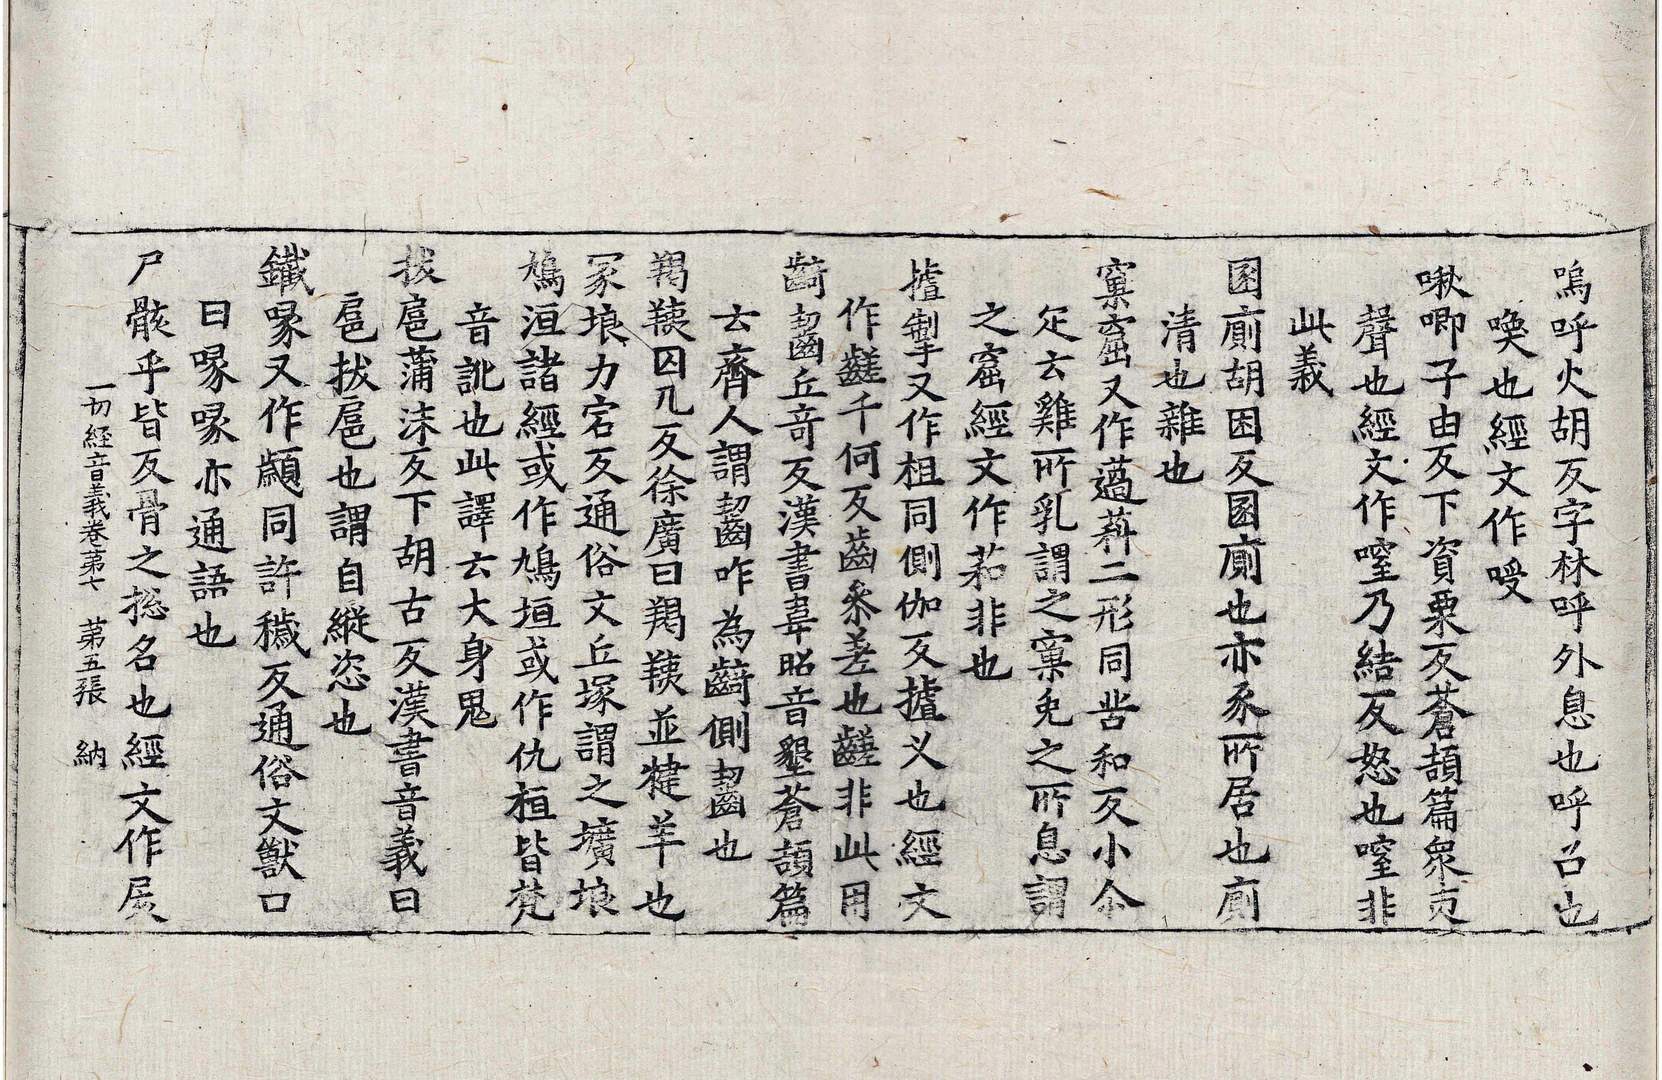 嗚呼火胡反字林呼外息也呼召也
喚也經文作嗳
啾唧子由反下資栗反蒼頡篇衆声
聲也經文作㗌乃結反怒也㗌非
此義
圂廁胡困反圂廁也亦豕所居也廁
清也雜也
窠窟又作薖䓇二形同苦和反小尒
疋云雞所乳謂之窠兔之所息謂
之窟經文作䓛非也
摣掣又作柤同側伽反摣叉也經文
作齹千何反齒參差也齹非此用
齮齧丘奇反漢書韋昭音墾蒼頡篇
云齊人謂齧咋為齮側齧也
羯羠囚兕反徐廣曰羯羠並犍羊也
冢埌力宕反通俗文丘塚謂之壙埌
鳩洹諸經或作鳩垣或作仇桓皆梵
音訛也此譯云大身鬼
拔扈蒲沫反下胡古反漢書音義曰
扈拔扈也謂自縱恣也
鐵喙又作䫟同許穢反通俗文獸口
曰喙喙亦通語也
尸骸乎皆反骨之捴名也經文作屍
一切經音義卷第七 第五張 納